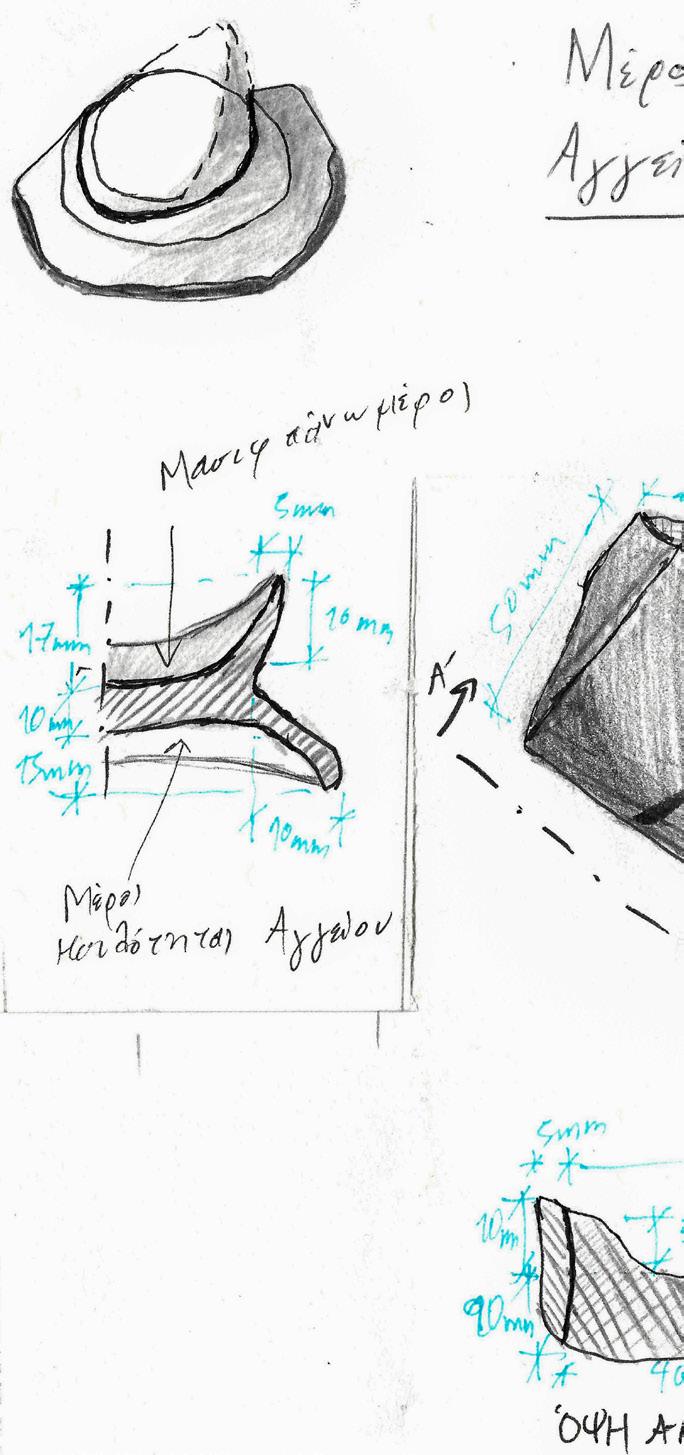 Μέρο
Αγγεί
Μασιφ πάνω μέρος
5mm
17mm
10mm
50mm
10mm
15mm
10mm
Α'
Μέρος
κοιλότητας Αγγείου
5mm
10m
40
ΌΨΗ Α